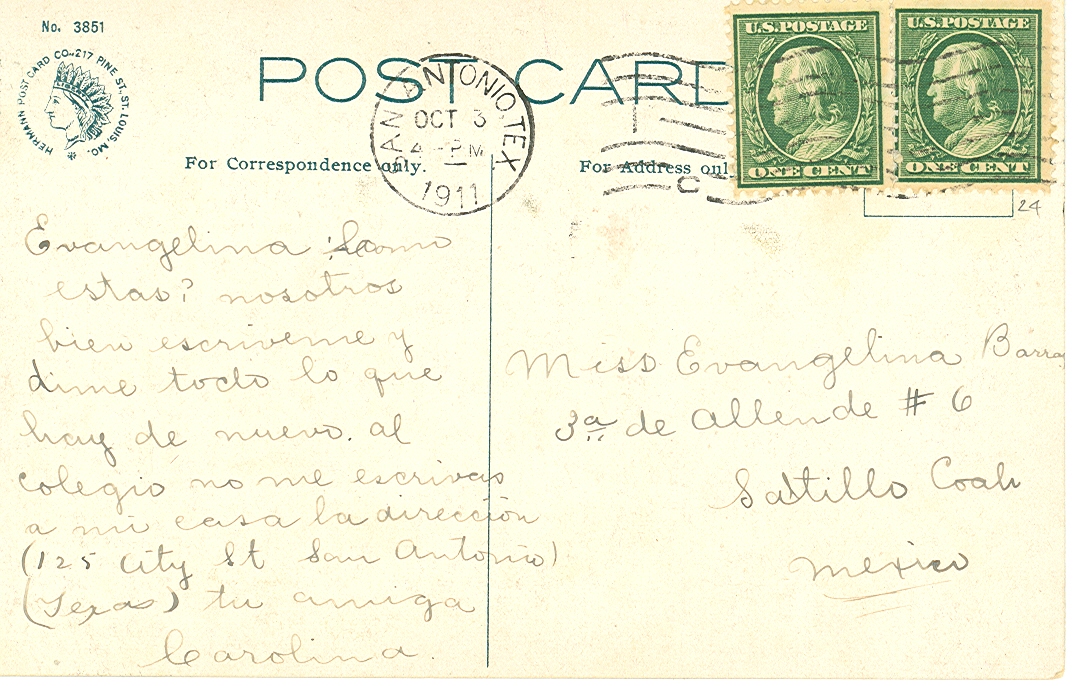 No. 3851
HERMANN POST CARD CO. 217 PINE ST., ST. LOUIS, MO.
POST CARD
SAN ANTONIO, TEX
OCT 3
4 - PM
1911
U.S. POSTAGE
ONE CENT
U.S. POSTAGE
ONE CENT
For Correspondence only.
For Address onl
24
Evangelina Como
estas? nosotros
bien escriveme y
dime todo lo que
hay de nuevo. al
colegio no me escrivas
a mi casa la dirección
(125 City St San Antonio)
(Texas) tu amiga
Carolina.
Miss Evangelina Barra
3a de Allende # 6
Saltillo Coah
Mexico